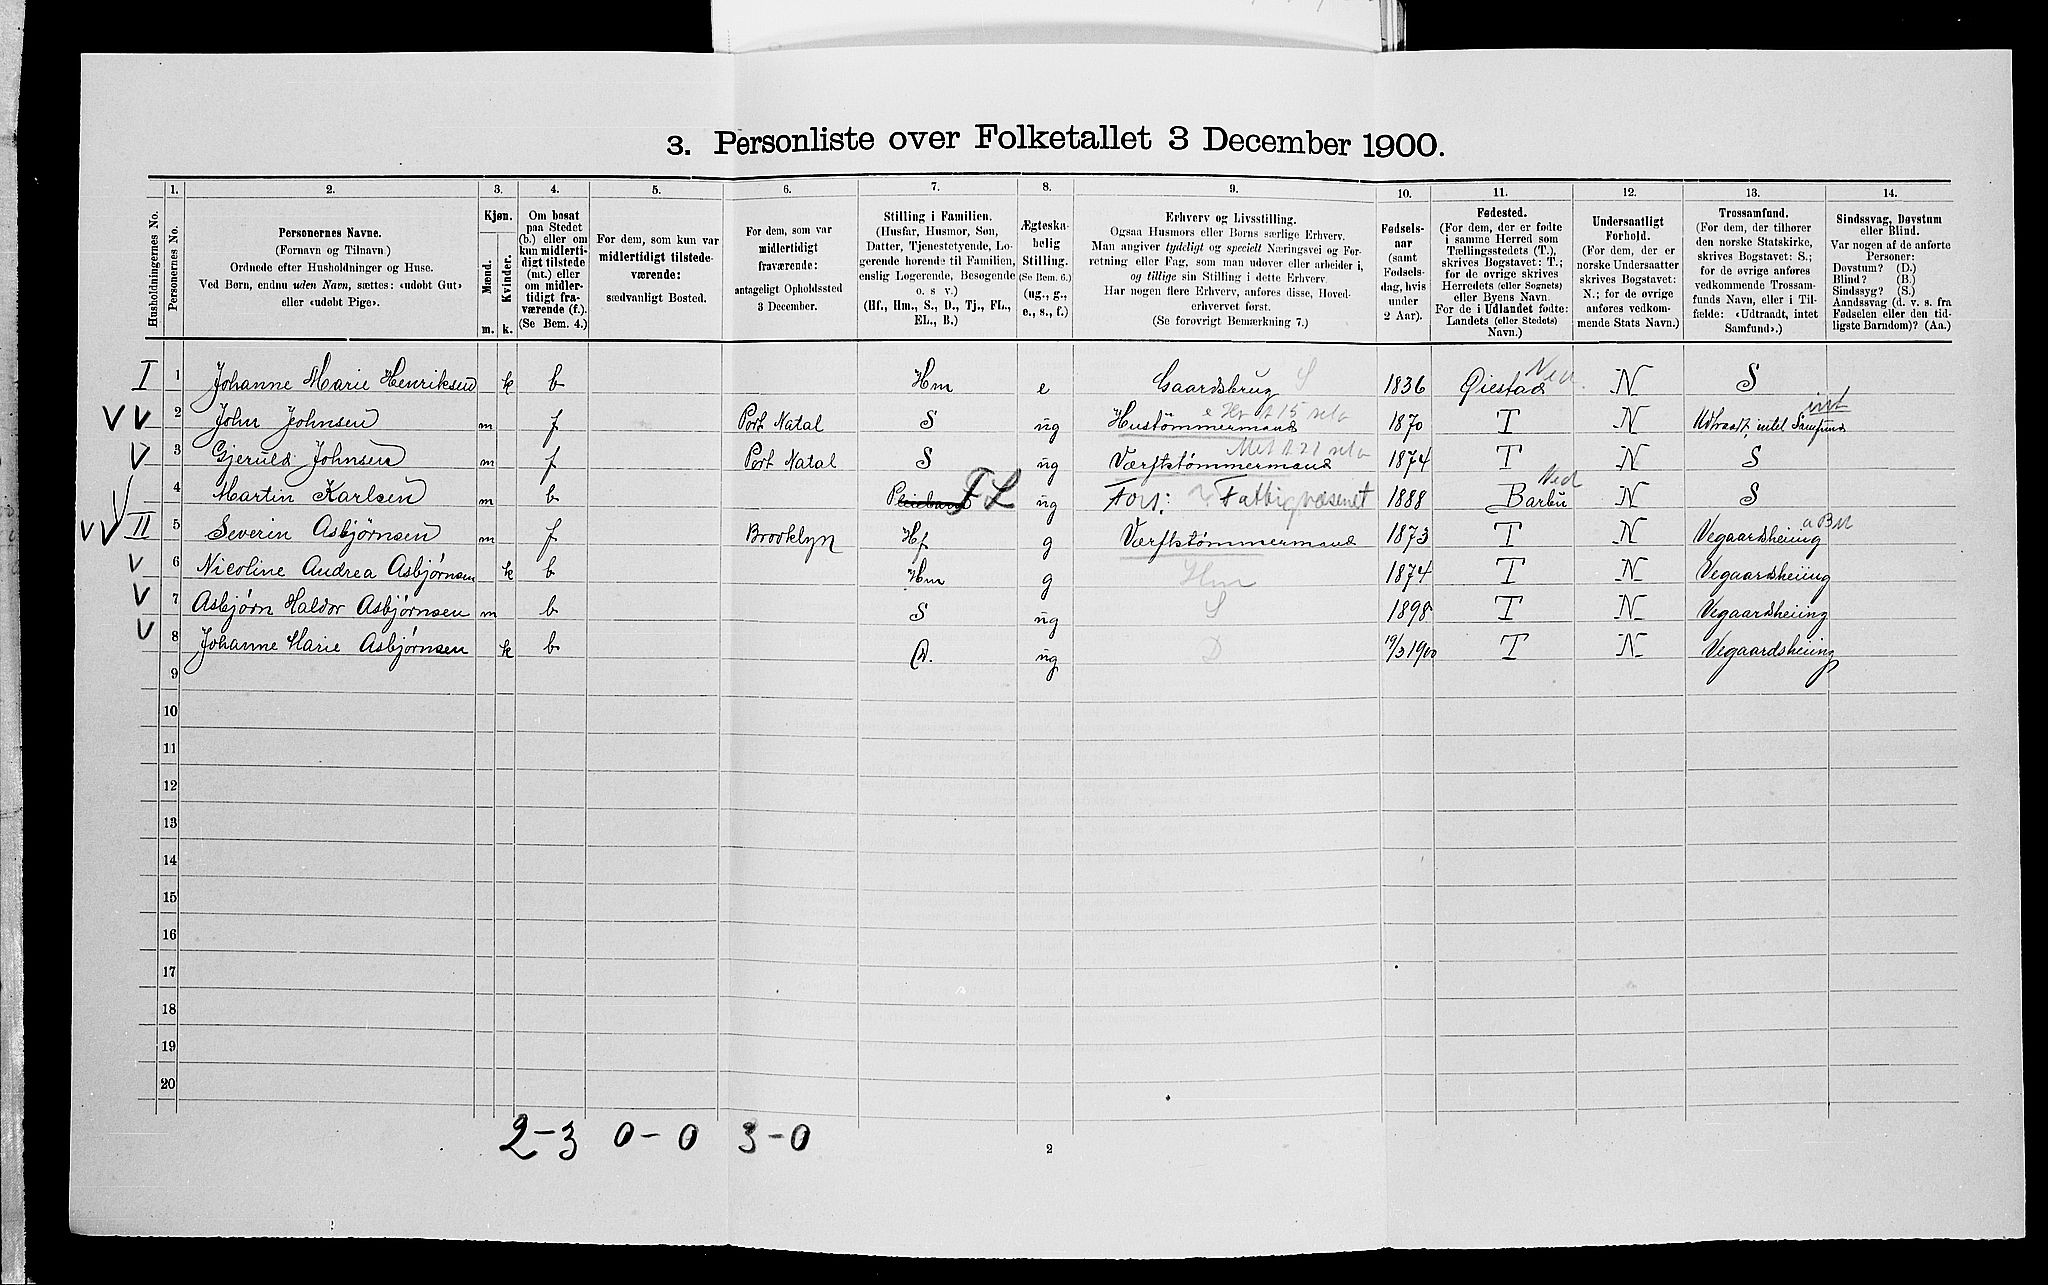 3. Personliste over Folketallet 3 December 1900.
1. 2. 3. 4. 5. 6. 7. 8. 9. 10. 11. 12. 13. 14.
Husholdningernes No.
Personernes No.
Personernes Navne.
(Fornavn og Tilnavn)
Ordnede efter Husholdninger og Huse.
Ved Børn, endnu uden Navn, sættes: «udøbt Gut»
eller «udøbt Pige».
Kjøn.
Mænd.
Kvinder.
m. k.
Om bosat
paa Stedet
(b.) eller om
kun midlerti-
digt tilstede
(mt.) eller
om midler-
tidigt fra-
værende (f.).
(Se Bem. 4.)
For dem, som kun var
midlertidigt tilstede-
værende:
sædvanligt Bosted.
For dem, som var
midlertidigt
fraværende:
antageligt Opholdssted
3 December.
Stilling i Familien.
(Husfar, Husmor, Søn,
Datter, Tjenestetyende, Lo-
gerende hørende til Familien,
enslig Logerende, Besøgende
o. s. v.)
(Hf., Hm., S., D., Tj., FL.,
EL., B.)
Ægteska-
belig
Stilling.
(Se Bem. 6.)
(ug., g.,
e., s., f.)
Erhverv og Livsstilling.
Ogsaa Husmors eller Børns særlige Erhverv.
Man angiver tydeligt og specielt Næringsvei og For-
retning eller Fag, som man udøver eller arbeider i,
og tillige sin Stilling i dette Erhverv.
Har nogen flere Erhverv, anføres disse, Hoved-
erhvervet først.
(Se forøvrigt Bemærkning 7.)
Fødsels-
aar
(samt
Fødsels-
dag, hvis
under
2 Aar).
Fødested.
(For dem, der er fødte
i samme Herred som
Tællingsstedets (T.),
skrives Bogstavet: T.;
for de øvrige skrives
Herredets (eller Sognets)
eller Byens Navn.
For de i Udlandet fødte:
Landets (eller Stedets)
Navn.)
Undersaatligt
Forhold.
(For dem, der er
norske Undersaatter
skrives Bogstavet:
N.; for de øvrige
anføres vedkom-
mende Stats Navn.)
Trossamfund.
(For dem, der tilhører
den norske Statskirke,
skrives Bogstavet: S.;
for de øvrige anføres
vedkommende Trossam-
funds Navn, eller i Til-
fælde: «Udtraadt, intet
Samfund».)
Sindssvag, Døvstum
eller Blind.
Var nogen af de anførte
Personer:
Døvstum? (D.)
Blind? (B.)
Sindssyg? (S.)
Aandssvag (d. v. s. fra
Fødselen eller den tid-
ligste Barndom)? (Aa.)
I 1 Johanne Marie Henriksen k b Hm e Gaardsbrug S 1836 Øiestad Ned. N S
2 John Johnsen m f Port Natal S ug Hustømmermand 1870 T N Udtraadt, intet Samfund int
3 Gjeruld Johnsen m f Port Natal S ug Værftstømmermand 1874 T N S
4 Martin Karlsen m b Pleiebarn FL ug Fors: Fattigvæsenet 1888 Barbu Ned N S
II 5 Severin Asbjørnsen m f Brooklyn Hf g Værftstømmermand 1873 T N Vegaardsheiing
6 Nicoline Andrea Asbjørnsen k b Hm g Hm 1874 T N Vegaardsheiing
7 Asbjørn Haldor Asbjørnsen m b S ug S 1898 T N Vegaardsheiing
8 Johanne Marie Asbjørnsen k b D. ug D 19/3 1900 T N Vegaardsheiing
9
10
11
12
13
14
15
16
17
18
19
20
2-3 0-0 3-0
2